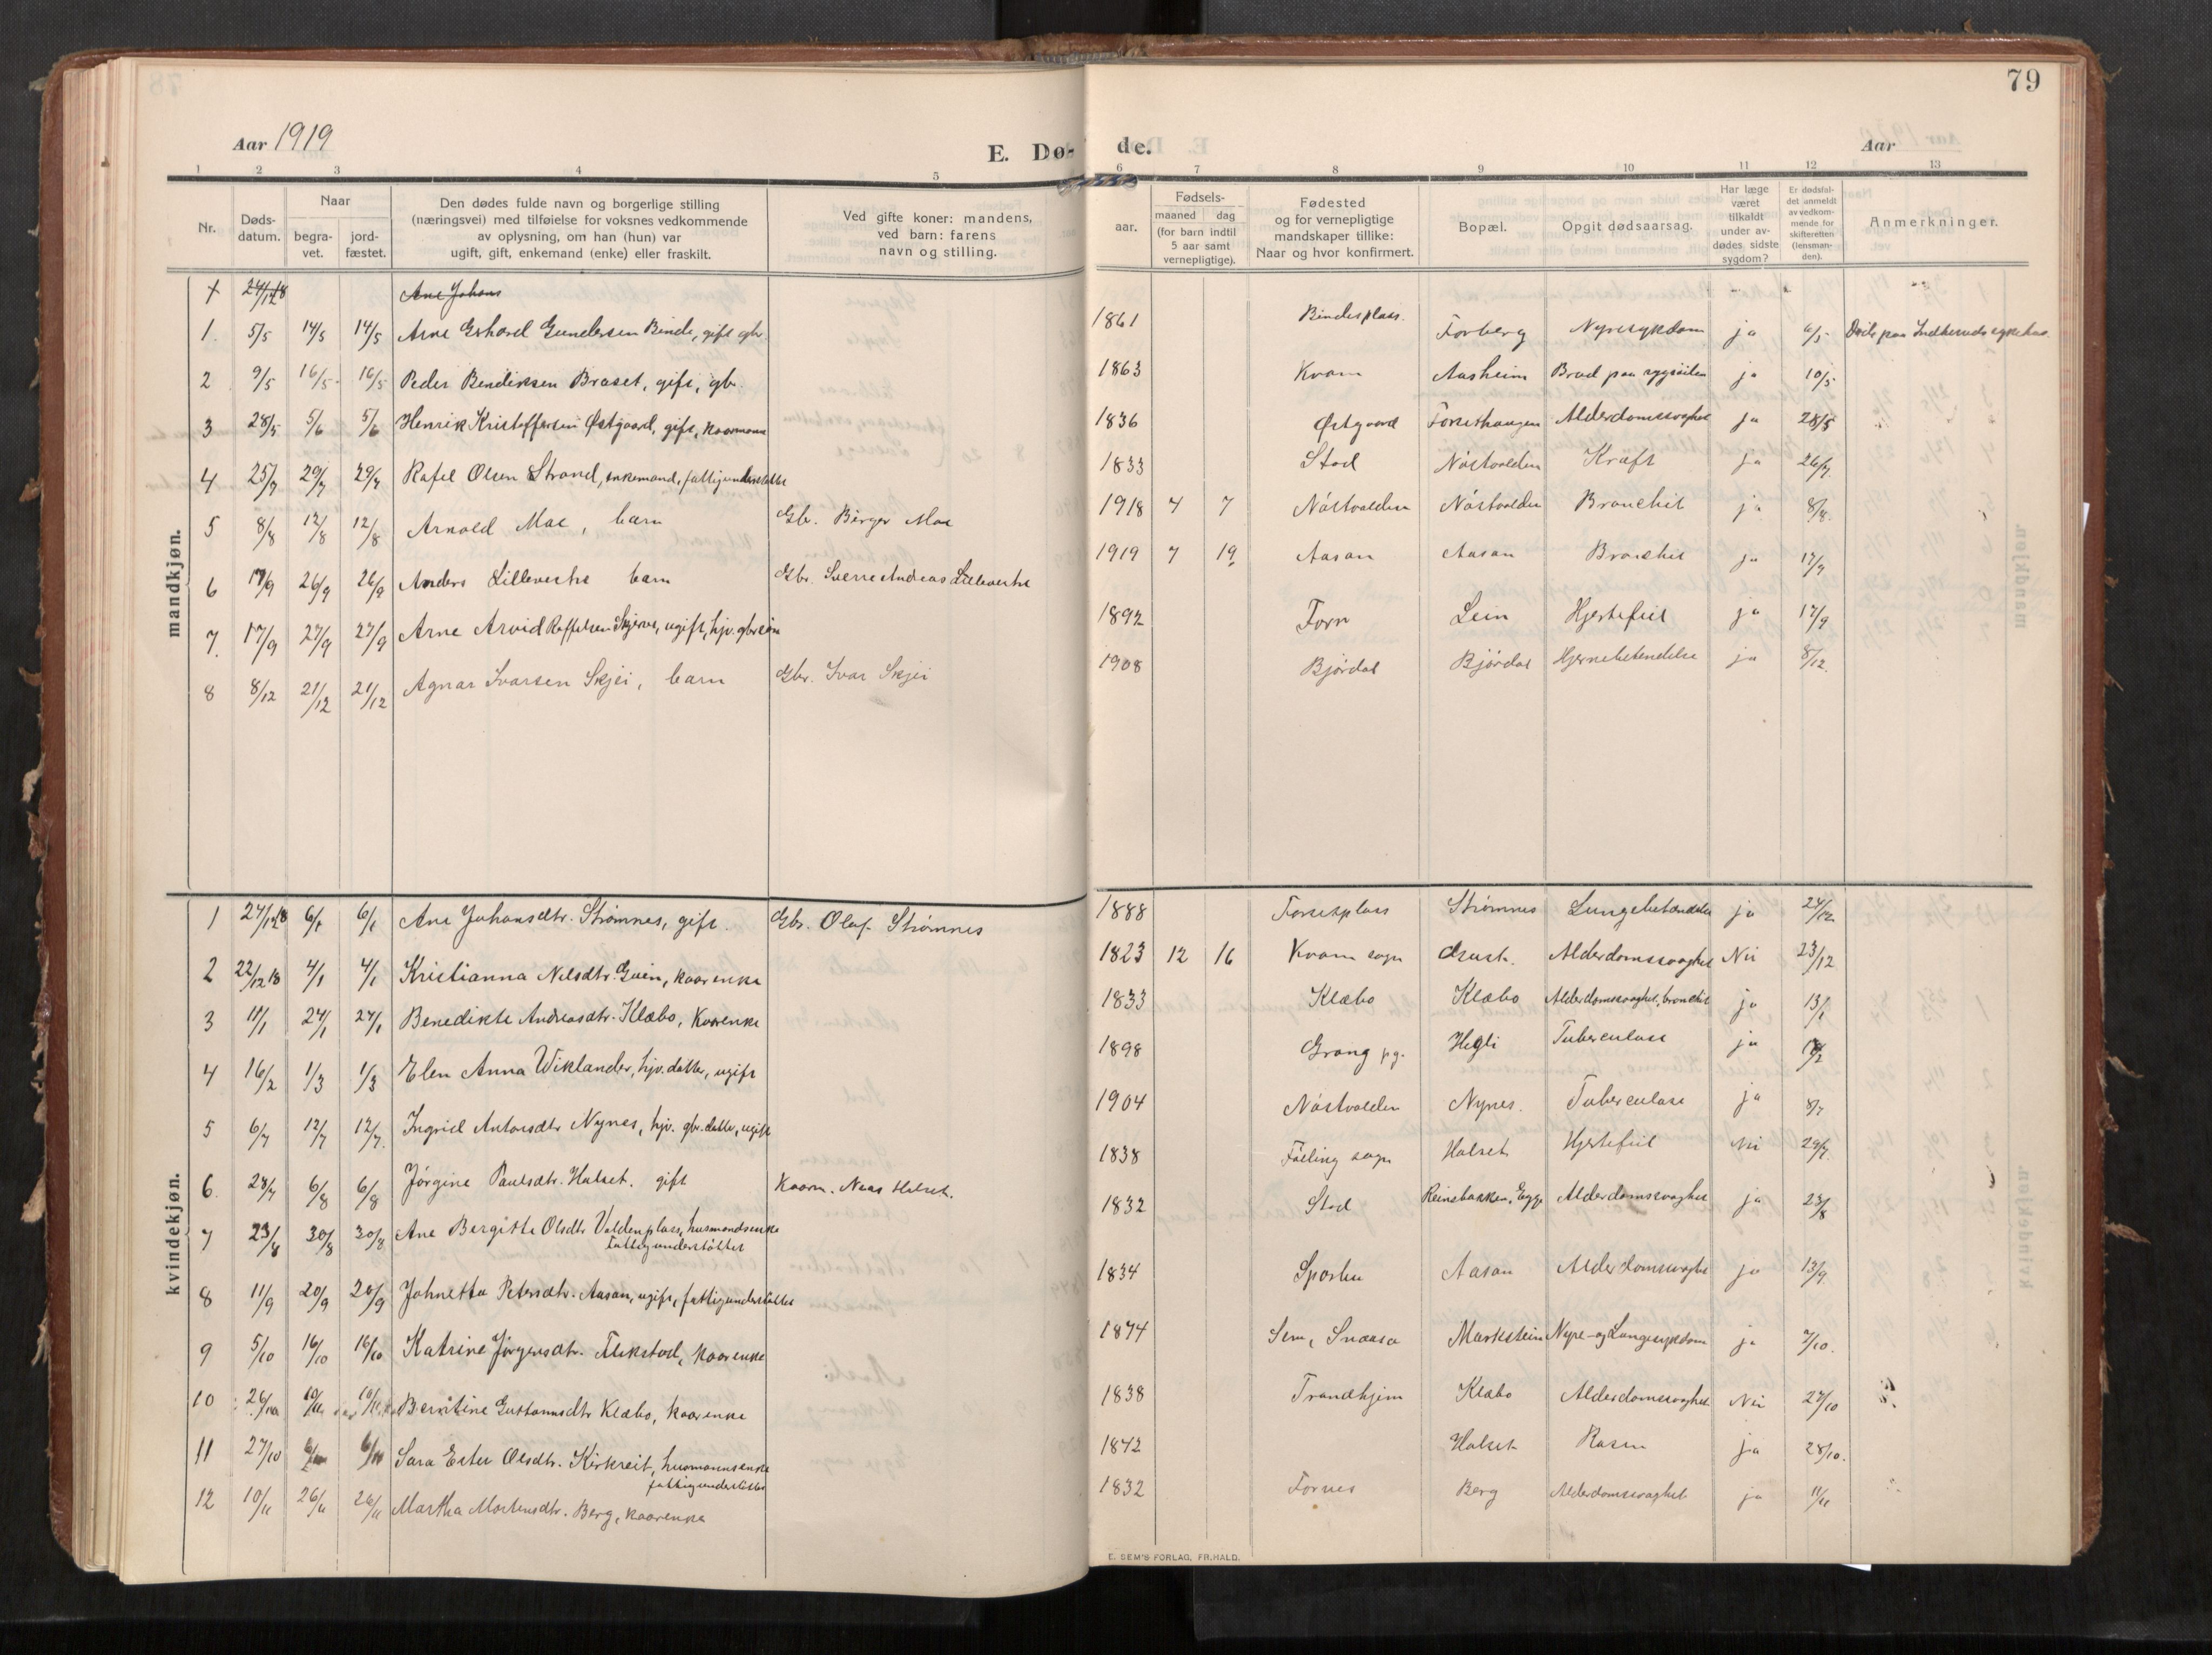 79
Aar 1919
E. Dø-
de.
Aar
1 2 3 4 5 6 7 8 9 10 11 12 13
Nr.
Døds-
datum.
Naar
begra-
vet.
jord-
fæstet.
Den dødes fulde navn og borgerlige stilling
(næringsvei) med tilføielse for voksnes vedkommende
av oplysning, om han (hun) var
ugift, gift, enkemand (enke) eller fraskilt.
Ved gifte koner: mandens,
ved barn: farens
navn og stilling.
Fødsels-
aar.
maaned dag
(for barn indtil
5 aar samt
vernepligtige).
Fødested
og for vernepligtige
mandskaper tillike:
Naar og hvor konfirmert.
Bopæl.
Opgit dødsaarsag.
Har læge
været
tilkaldt
under av-
dødes sidste
sygdom?
Er dødsfal-
det anmeldt
av vedkom-
mende for
skifteretten
(lensman-
den).
Anmerkninger.
mandkjøn.
24/12 18 Ane Johans
1. 5/5 14/5 14/5 Arne Erhard Gundersen Binde, gift gbr. 1861 Bindesplass. Forberg Nyresykdom ja 6/5 Død paa Indherreds sykehus.
2 9/5 16/5 16/5 Peder Bendiksen Braset, gift, gbr. 1863 Kvam Aasheim Brud paa rygsøilen ja 10/5
3 28/5 5/6 5/6 Henrik Kristoffersen Østgaard, gift, kaarmann 1836 Østgaard Forsethaugen Alderdomssvaghet ja 28/5
4 25/7 29/7 29/7 Rafel Olsen Strand, enkemand, fattigunderstøttet 1833 Stod Nøstvolden Kræft ja 26/7
5 8/8 12/8 12/8 Arnold Moe, barn Gbr. Birger Moe 1918 4 7 Nøstvolden Nøstvolden Bronchit ja 8/8.
6 17/9 26/9 26/9 Anders Lillevestre barn Gbr. Sverre Andreas Lillevestre 1919 7 19 Aasan Aasan Bronchit ja 17/9
7. 17/9 27/9 27/9 Arne Arvid Roffelsen Skjerve, ugift, hjv. gbr søn 1892 Forr Lein Hjertefeil ja 17/9
8 8/12 21/12 21/12 Agnar Ivarsen Skjei, barn Gbr. Ivar Skjei 1908 Bjørdal Bjørdal Hjernebetendelse ja 8/12.
kvindekjøn.
1 24/12 18 6/1 6/1 Ane Johansdtr. Strømnes, gift. Gbr. Olaf Strømnes 1888 Forsetplass Strømnes Lungebetændelse ja 24/12
2 22/12 18 4/1 4/1 Kristianna Nilsdtr. Gvin, kaarenke 1823 12 16 Kvam sogn Alderdomssvaghet Nei 23/12
3 11/1 24/1 24/1 Benedikte Andreasdtr. Klæbo, Kaarenke 1833 Klæbo Klæbo Alderdomssvaghet, bronchit ja 13/1
4 16/2 1/3 1/3 Elen Anna Wiklander, hjv. datter, ugift 1898 Grong pg. Hegli Tuberculose ja
5 6/7 12/7 12/7. Ingrid Antonsdtr Nynes, hjv. gbr. datter, ugift 1904 Nøstvolden Nynes. Tuberculose ja 8/7
6. 28/7 6/8 6/8 Jørgine Paulsdtr. Halset. gift Kaarm. Naas Halset. 1838 Følling sogn Halset Hjertefeil Nei 29/7.
7 23/8 30/8 30/8 Ane Bergitte Olsdtr Valdenplass, husmandsenke
Fattigunderstøttet 1832 Stod Reinsbakken, Egge Alderdomssvaghet ja 23/8
8 11/9 20/9 20/9 Johnetta Petersdtr. Aasan, ugift, fattigunderstøttet 1834 Sparbu Aasan Alderdomssvaghet ja 13/9.
9 5/10 16/10 16/10 Katrine Jørgensdtr. Flekstad, kaarenke 1874 Sem, Snaasa Markstein Nyre- og Lungesykdom ja 7/10.
10 26/10 10/11 10/11 Berntine Gustavusdtr Klæbo, kaarenke 1838 Trondhjem Klæbo Alderdomssvaghet Nei 27/10
11 27/10 6/11 6/11 Sara Ester Olsdtr. Kirkreit, husmannsenke
fattigunderstøttet 1842 Halset Rosen ja 28/10.
12 10/11 26/11 26/11 Martha Mortensdtr. Berg, kaarenke 1832 Fornes Berg Alderdomssvaghet ja 11/11
E. SEM'S FORLAG, FR.HALD.